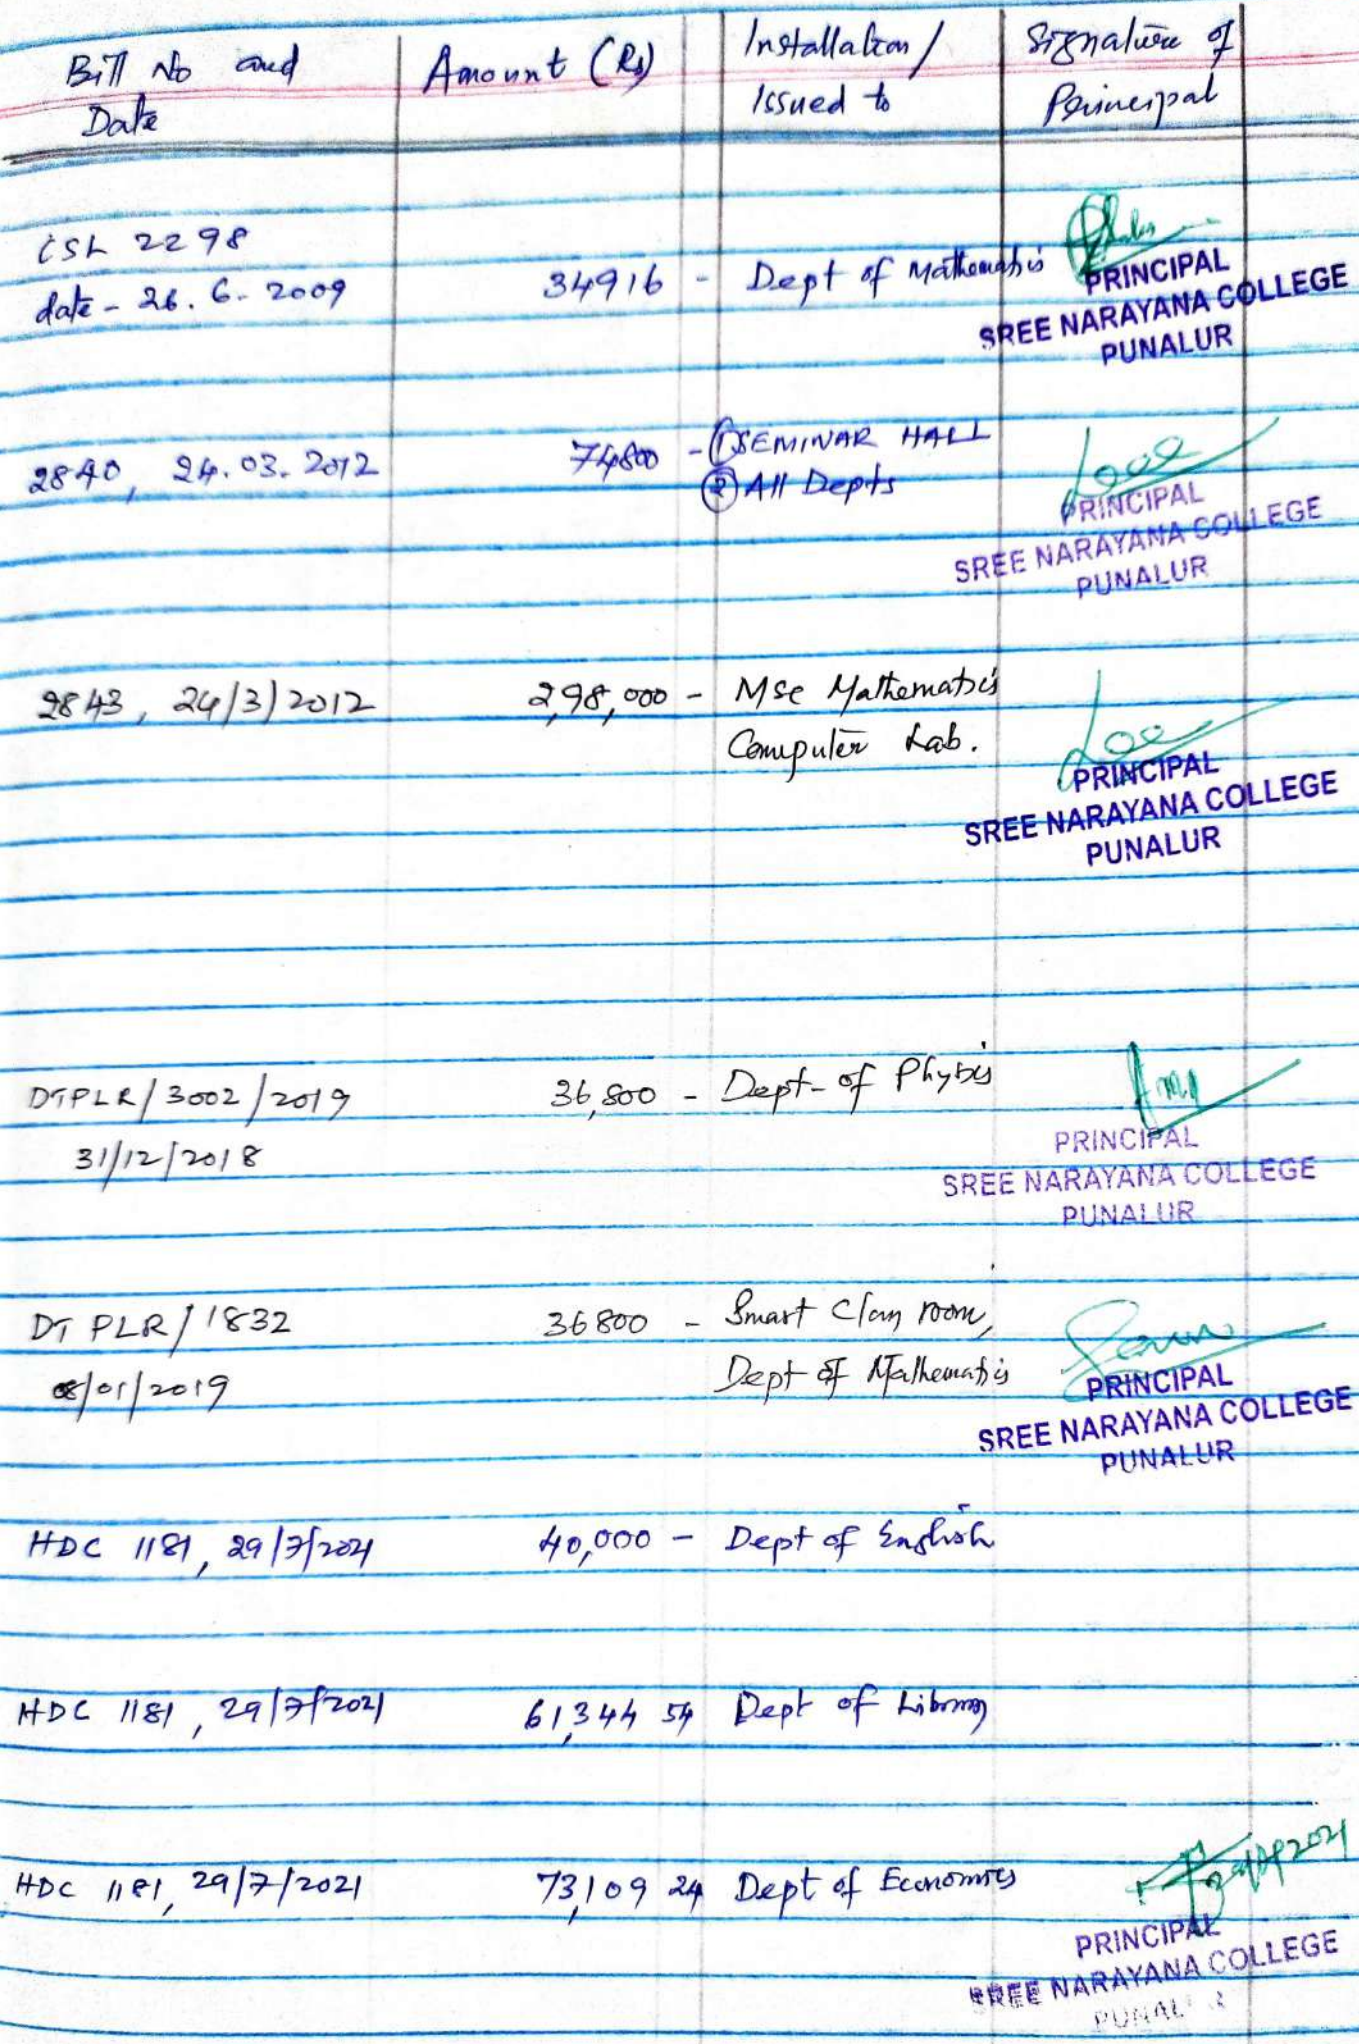 Bill No and Date
Amount (Rs)
Installation / Issued to
Signature of Principal
CSL 2298
date - 26. 6. 2009
34916 - Dept of Mathematics
PRINCIPAL
SREE NARAYANA COLLEGE
PUNALUR
2840, 24.03.2012
74800 - ① SEMINAR HALL
② All Depts
PRINCIPAL
SREE NARAYANA COLLEGE
PUNALUR
2843, 24/3/2012
2,98,000 - MSc Mathematics
Computer Lab.
PRINCIPAL
SREE NARAYANA COLLEGE
PUNALUR
DTPLR/3002/2019
36,800 - Dept- of Physics
31/12/2018
PRINCIPAL
SREE NARAYANA COLLEGE
PUNALUR
DT PLR/1832
36800 - Smart Class room,
08/01/2019
Dept of Mathematics
PRINCIPAL
SREE NARAYANA COLLEGE
PUNALUR
HDC 1181, 29/7/2021
40,000 - Dept of English
HDC 1181, 29/7/2021
61,344 54 Dept of Library
HDC 1181, 29/7/2021
73,109 24 Dept of Economics
PRINCIPAL
SREE NARAYANA COLLEGE
PUNALUR